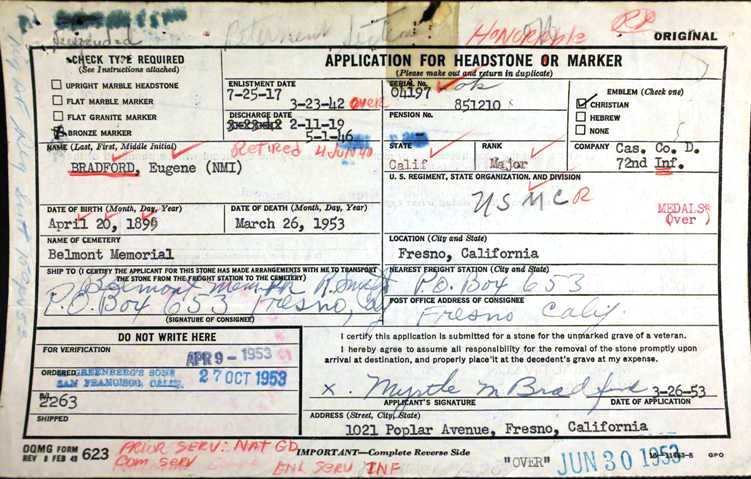 Interment
HONORABLE
ORIGINAL
CHECK TYPE REQUIRED
(See Instructions attached)
UPRIGHT MARBLE HEADSTONE
FLAT MARBLE MARKER
FLAT GRANITE MARKER
BRONZE MARKER
APPLICATION FOR HEADSTONE OR MARKER
(Please make out and return in duplicate)
ENLISTMENT DATE
7-25-17
3-23-42 over
DISCHARGE DATE
2-11-19
5-1-46
Retired 4 JUN 40
SERIAL No.
04197
851210
PENSION No.
EMBLEM (Check one)
CHRISTIAN
HEBREW
NONE
NAME (Last, First, Middle Initial)
BRADFORD, Eugene (NMI)
STATE
Calif
RANK
Major
COMPANY
Cas. Co. D.
72nd Inf.
U. S. REGIMENT, STATE ORGANIZATION, AND DIVISION
USMCR
MEDALS
(over)
DATE OF BIRTH (Month, Day, Year)
April 20, 1899
DATE OF DEATH (Month, Day, Year)
March 26, 1953
NAME OF CEMETERY
Belmont Memorial
LOCATION (City and State)
Fresno, California
SHIP TO (I CERTIFY THE APPLICANT FOR THIS STONE HAS MADE ARRANGEMENTS WITH ME TO TRANSPORT
THE STONE FROM THE FREIGHT STATION TO THE CEMETERY)
Belmont Mem Pk
P.O. Box 653 Fresno,
(SIGNATURE OF CONSIGNEE)
NEAREST FREIGHT STATION (City and State)
P.O. Box 653
POST OFFICE ADDRESS OF CONSIGNEE
Fresno Calif.
DO NOT WRITE HERE
FOR VERIFICATION
APR 9 - 1953
ORDERED
GREENBERG'S SONS
SAN FRANCISCO, CALIF.
27 OCT 1953
2263
SHIPPED
I certify this application is submitted for a stone for the unmarked grave of a veteran.
I hereby agree to assume all responsibility for the removal of the stone promptly upon
arrival at destination, and properly place it at the decedent's grave at my expense.
x. Myrtle M Bradford 3-26-53
APPLICANT'S SIGNATURE
DATE OF APPLICATION
ADDRESS (Street, City, State)
1021 Poplar Avenue, Fresno, California
OQMG FORM
REV 8 FEB 49
623
PRIOR SERV: NAT GD
COM SERV
ENL SERV INF
IMPORTANT—Complete Reverse Side
"OVER"
JUN 30 1953
GPO